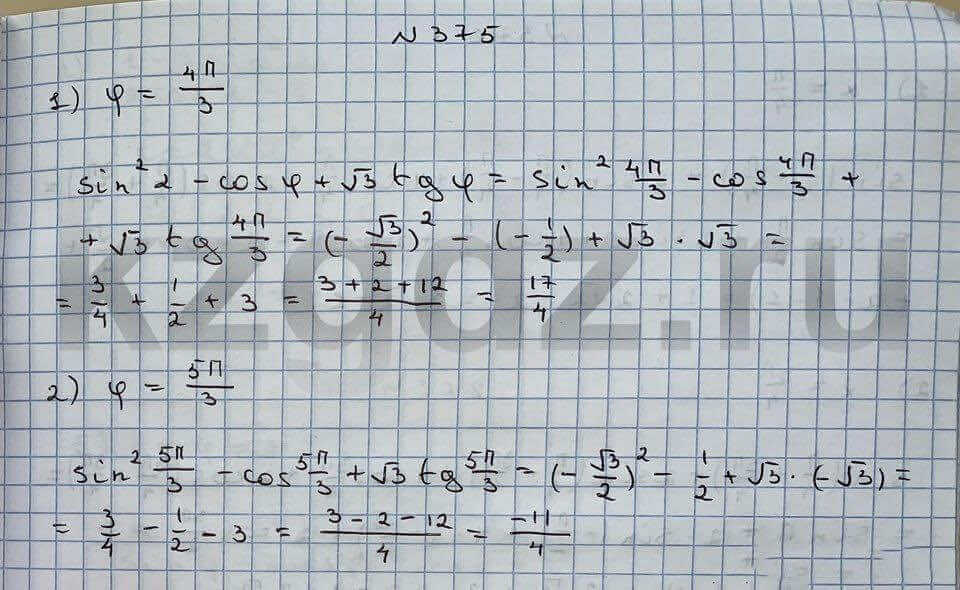 N 375
1) φ = 4π/3
sin² 2 - cos φ + √3 tg φ = sin² 4π/3 - cos 4π/3 +
+ √3 tg 4π/3 = (- √3/2)² - (- 1/2) + √3 · √3 =
= 3/4 + 1/2 + 3 = (3 + 2 + 12)/4 = 17/4
kzgdz.ru
2) φ = 5π/3
sin² 5π/3 - cos 5π/3 + √3 tg 5π/3 = (- √3/2)² - 1/2 + √3 · (- √3) =
= 3/4 - 1/2 - 3 = (3 - 2 - 12)/4 = -11/4